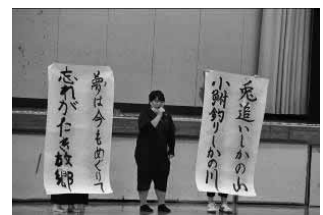 兎追いしかの山
小鮒釣りしかの川
夢は今もめぐりて
忘れがたき故郷